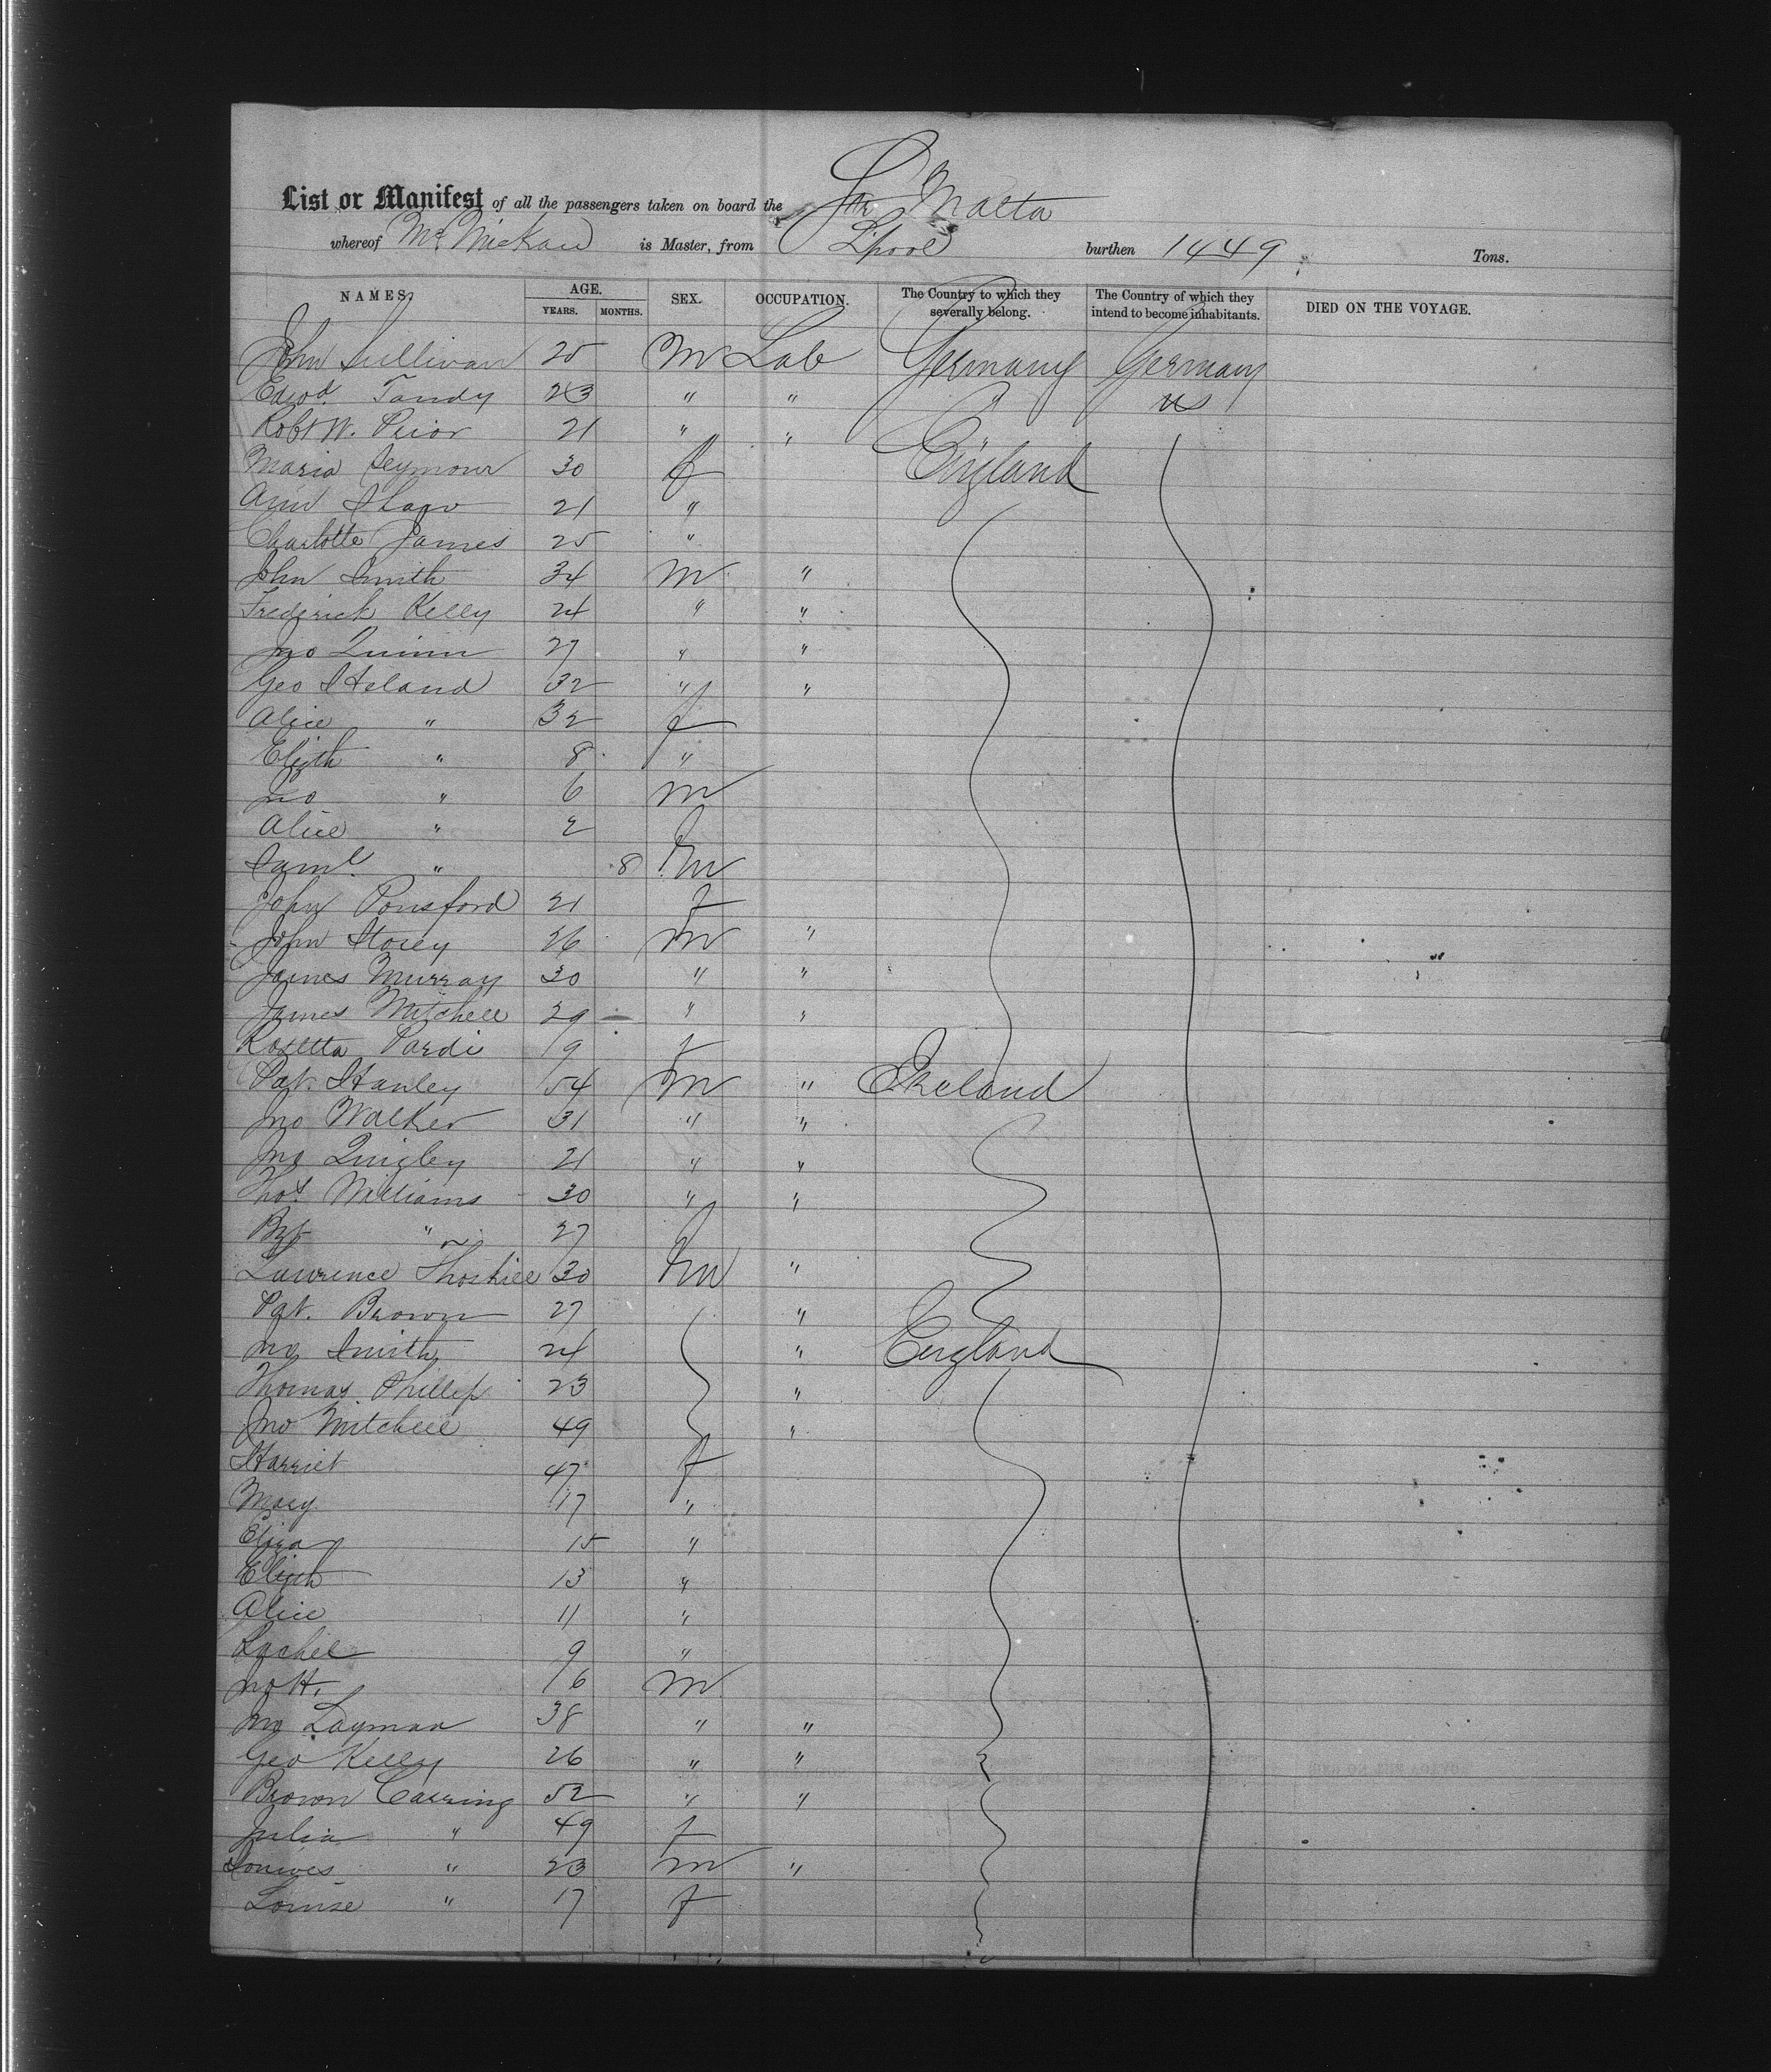 List or Manifest of all the passengers taken on board the Str Malta
whereof McMickan is Master, from L'pool burthen 1449 Tons.
NAMES. AGE. SEX. OCCUPATION. The Country to which they severally belong. The Country of which they intend to become inhabitants. DIED ON THE VOYAGE.
YEARS. MONTHS.
John Sullivan 25 M Lab Germany Germany
Edwd. Tandy 23 " " " US
Robt W. Prior 21 " " "
Maria Seymour 30 f England
Ann Shaw 21 "
Charlotte James 25 "
John Smith 34 M "
Frederick Kelly 24 " "
Jno Quinn 27 " "
Geo Heland 32 " "
Alice " 32 f
Elizth " 8 "
Jno " 6 M
Alice " 2 f
Saml. " 8 M
John Ponsford 21 f
John Storey 26 M "
James Murray 30 " "
James Mitchell 29 " "
Rosetta Pardi 19 f
Pat. Hanley 54 M " Ireland
Jno Walker 31 " "
Jno Quigley 21 " "
Thos. Williams 30 " "
Bgt " 27 f
Lawrence 30 M "
Pat. Brown 27 "
Jno Smith 24 " England
Thomas Phillips 23 "
Jno Mitchell 49 "
Harriet 47 f
Mary 17 "
Eliza 15 "
Elizth 13 "
Alice 11 "
Rachel 9 "
Jno H. 6 M
Jno Layman 38 " "
Geo Kelly 26 " "
Brown Carring 52 " "
Julia " 49 f
" 23 M "
Louise " 17 f